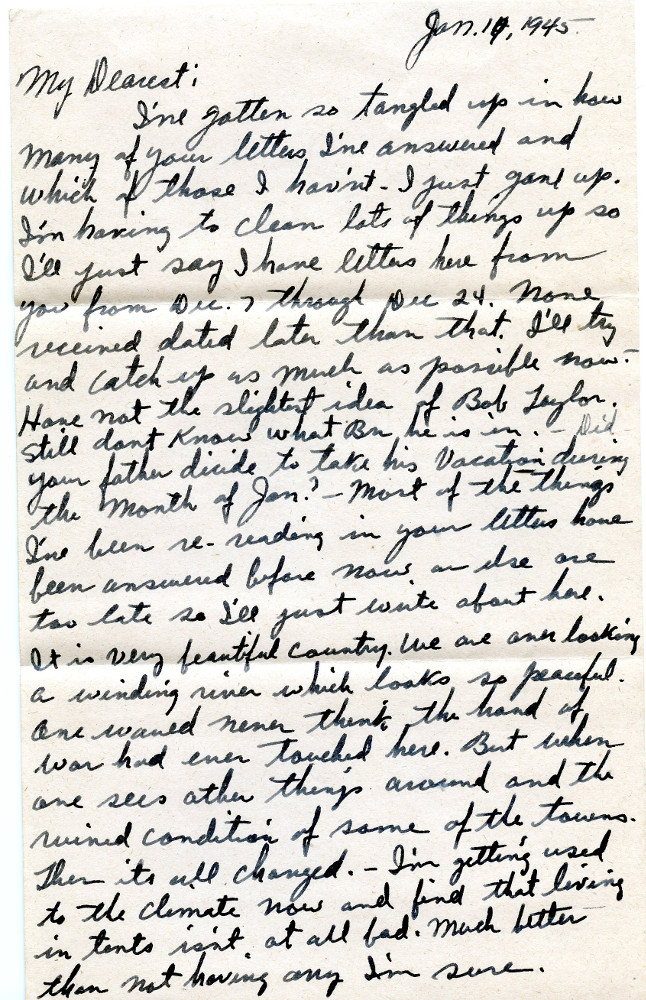 Jan. 14, 1945.
My Dearest:
I've gotten so tangled up in how
many of your letters I've answered and
which of those I hav'nt - I just gave up.
I'm having to clean lots of things up so
I'll just say I have letters here from
you from Dec. 7 through Dec 24. None
received dated later than that. I'll try
and catch up as much as possible now.
Have not the slightest idea of Bob Taylor.
Still dont know what Bn he is in. - Did
your father decide to take his vacation during
the month of Jan? - Most of the things
I've been re-reading in your letters have
been answered before now or else are
too late so I'll just write about here.
It is very beautiful country. We are over looking
a winding river which looks so peaceful.
One would never think the hand of
war had ever touched here. But when
one sees other things around and the
ruined condition of some of the towns.
Then its all changed. - I'm getting used
to the climate now and find that living
in tents isn't at all bad. Much better
than not having any I'm sure.